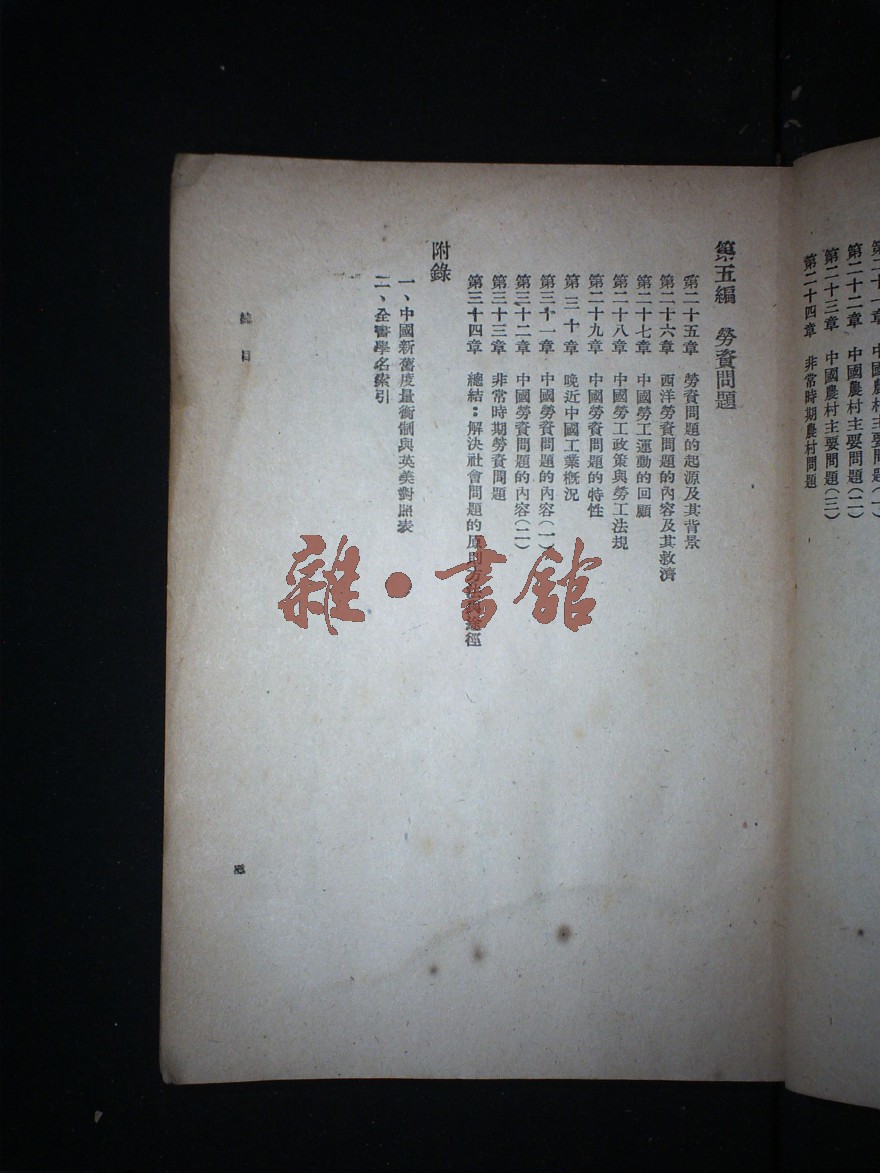 第二十二章 中國農村主要問題(二)
第二十三章 中國農村主要問題(三)
第二十四章 非常時期農村問題
第五編 勞資問題
第二十五章 勞資問題的起源及其背景
第二十六章 西洋勞資問題的內容及其救濟
第二十七章 中國勞工運動的回顧
第二十八章 中國勞工政策與勞工法規
第二十九章 中國勞資問題的特性
第三十章 晚近中國工業概況
第三十一章 中國勞資問題的內容(一)
第三十二章 中國勞資問題的內容(二)
第三十三章 非常時期勞資問題
第三十四章 總結:解決社會問題的原則方 途徑
附錄
一、中國新舊度量衡制與英美對照表
二、全書學名索引
總目
雜·書館